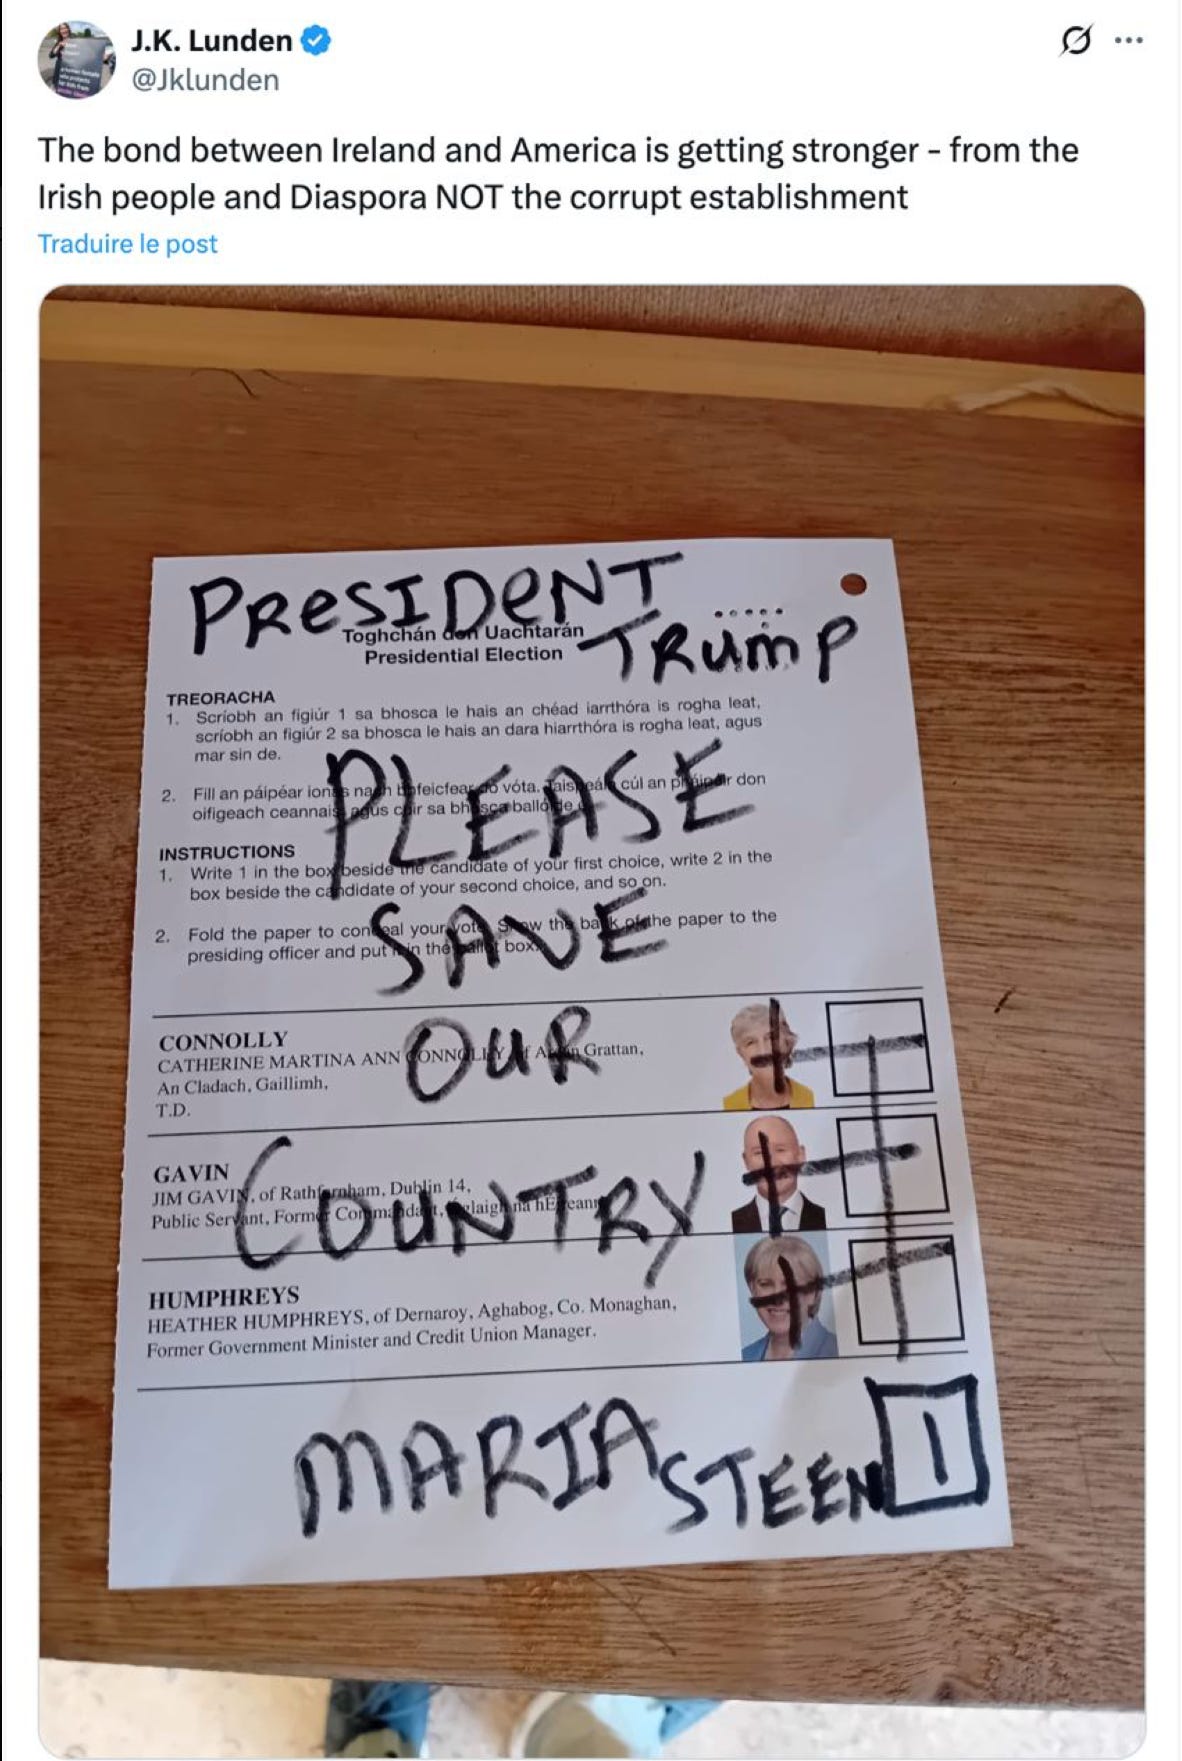 J.K. Lunden
@Jklunden
The bond between Ireland and America is getting stronger - from the
Irish people and Diaspora NOT the corrupt establishment
Traduire le post
PRESIDENT
TRUMP
Toghchán don Uachtarán
Presidential Election
TREORACHA
1. Scríobh an figiúr 1 sa bhosca le hais an chéad iarrthóra is rogha leat,
scríobh an figiúr 2 sa bhosca le hais an dara hiarrthóra is rogha leat, agus
mar sin de.
PLEASE
2. Fill an páipéar ionas nach bhfeicfear do vóta. Taispeáin cúl an pháipéir don
oifigeach ceannais agus cuir sa bhosca ballóide é.
INSTRUCTIONS
1. Write 1 in the box beside the candidate of your first choice, write 2 in the
box beside the candidate of your second choice, and so on.
SAVE
2. Fold the paper to conceal your vote. Show the back of the paper to the
presiding officer and put it in the ballot box.
OUR
CONNOLLY
CATHERINE MARTINA ANN CONNOLLY, of Grattan,
An Cladach, Gaillimh,
T.D.
COUNTRY
GAVIN
JIM GAVIN, of Rathfarnham, Dublin 14,
Public Servant, Former Commandant, Óglaigh na hÉireann
HUMPHREYS
HEATHER HUMPHREYS, of Dernaroy, Aghabog, Co. Monaghan,
Former Government Minister and Credit Union Manager.
MARIA
STEEN 1